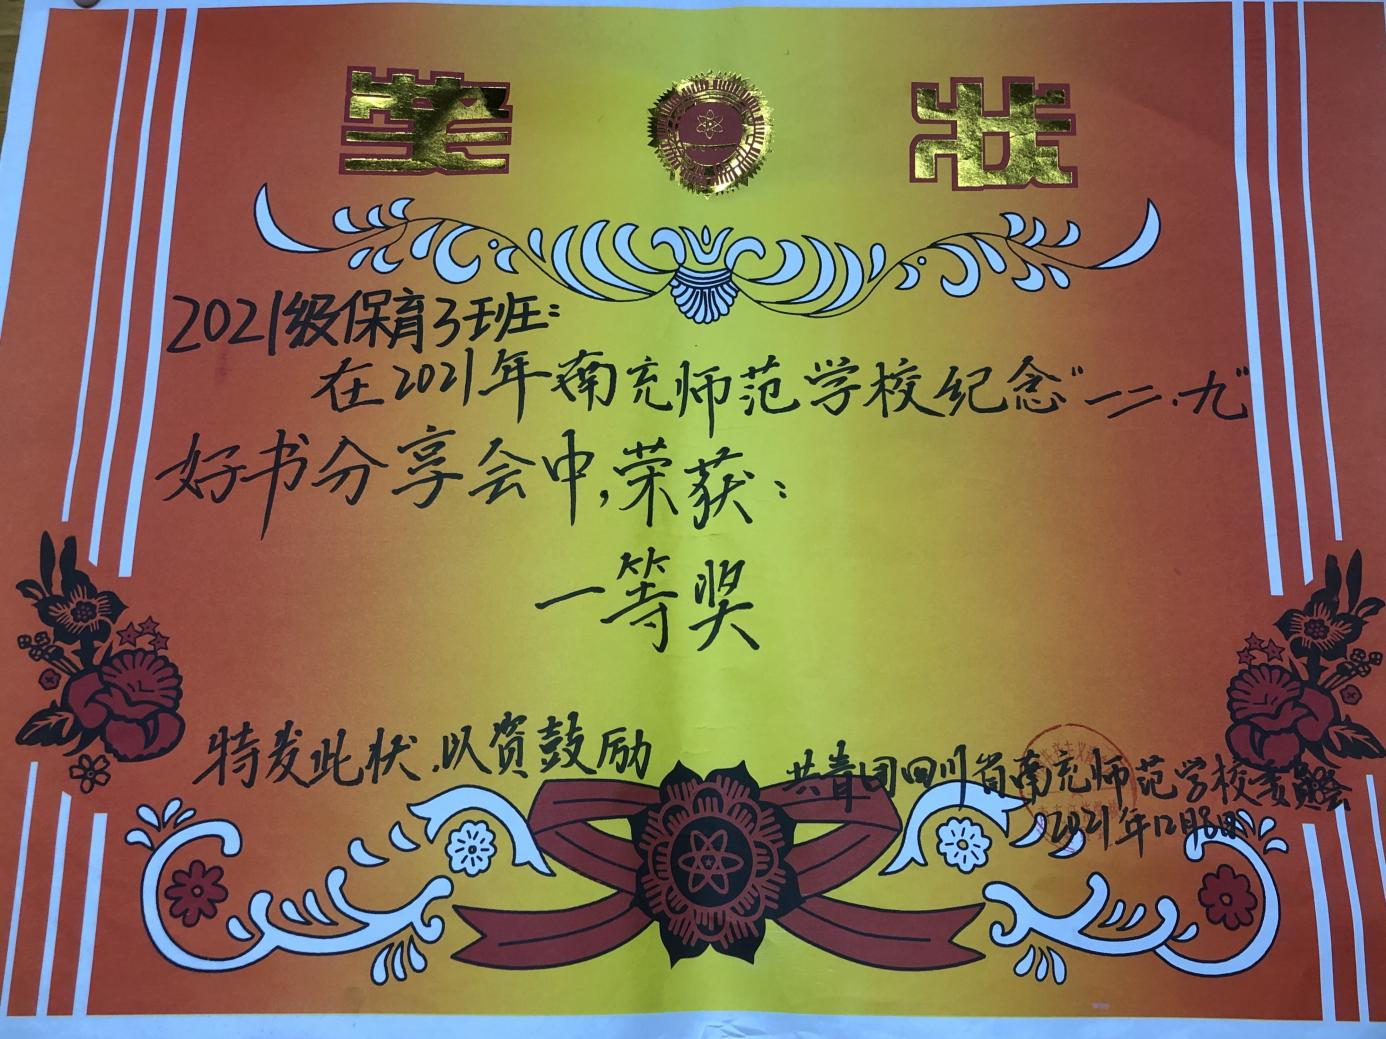 奖状
2021级保育3班：
在2021年南充师范学校纪念“一二.九”
好书分享会中,荣获：
一等奖
特发此状.以资鼓励
共青团四川省南充师范学校委员会
2021年12月8日